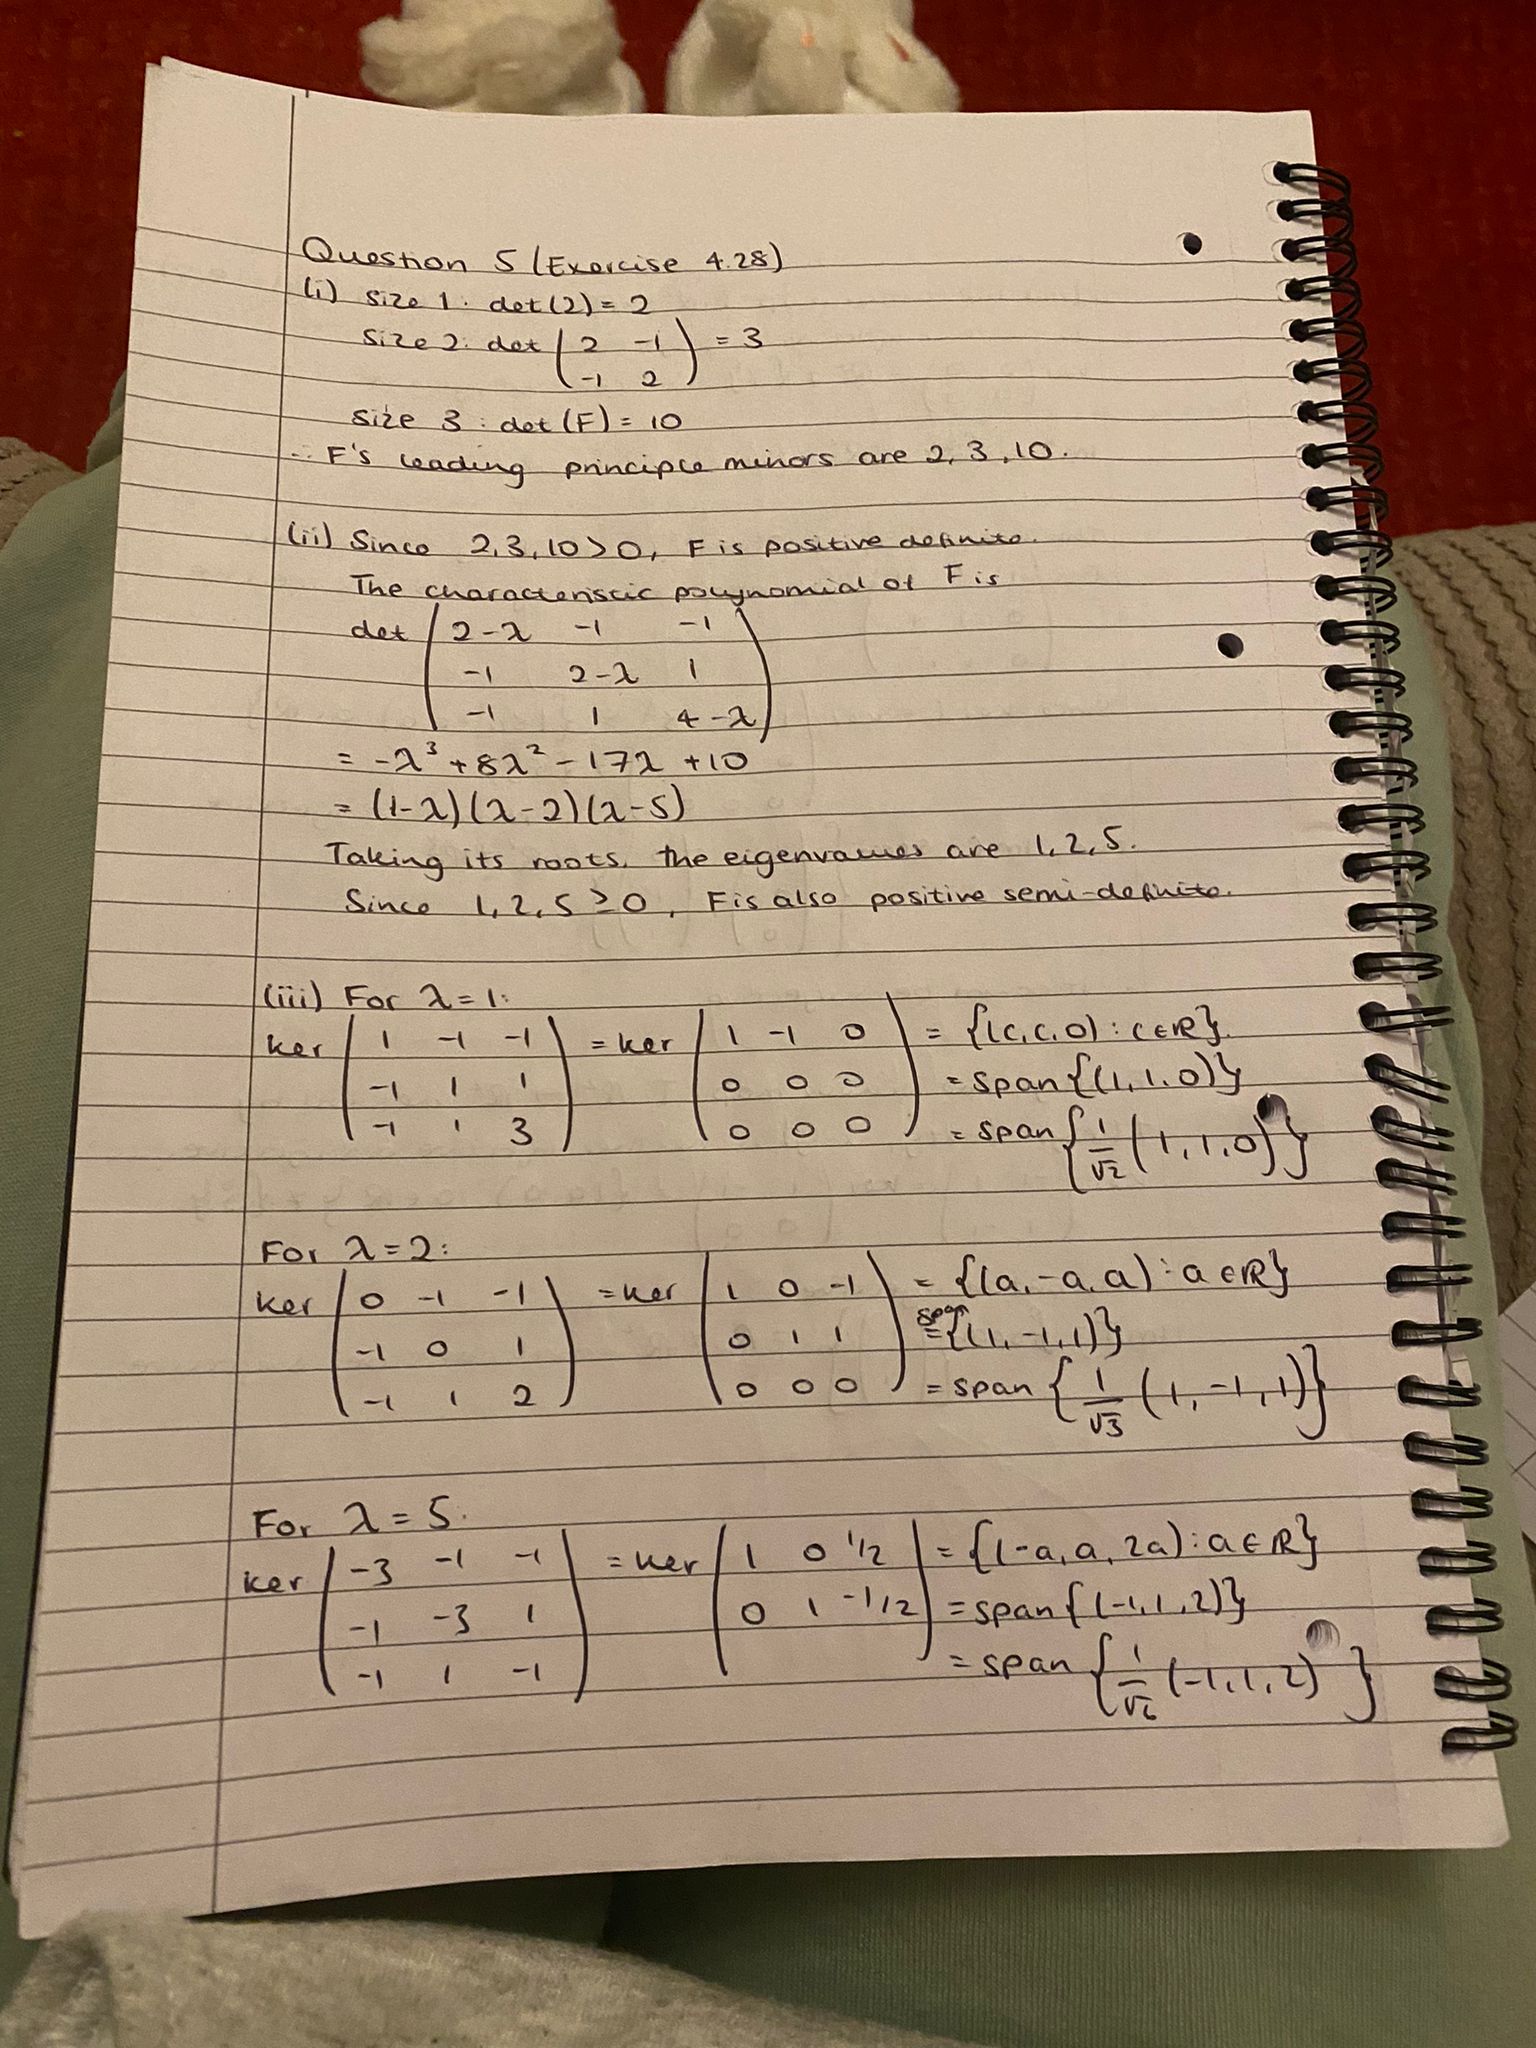 Question 5 (Exercise 4.28)
(i) size 1: det(2) = 2
size 2: det ( 2 -1 ) = 3
( -1 2 )
size 3: det(F) = 10
∴ F's leading principle minors are 2, 3, 10.
(ii) Since 2, 3, 10 > 0, F is positive definite.
The characteristic polynomial of F is
det ( 2-λ -1 -1 )
( -1 2-λ 1 )
( -1 1 4-λ )
= -λ³ + 8λ² - 17λ + 10
= (1-λ)(λ-2)(λ-5)
Taking its roots, the eigenvalues are 1, 2, 5.
Since 1, 2, 5 ≥ 0, F is also positive semi-definite.
(iii) For λ = 1:
ker ( 1 -1 -1 ) = ker ( 1 -1 0 ) = {(c, c, 0) : c ∈ ℝ}.
( -1 1 1 ) ( 0 0 0 ) = span{(1, 1, 0)}
( -1 1 3 ) ( 0 0 0 ) = span{1/√2 (1, 1, 0)}
For λ = 2:
ker ( 0 -1 -1 ) = ker ( 1 0 -1 ) = {(a, -a, a) : a ∈ ℝ}
( -1 0 1 ) ( 0 1 1 ) = span{(1, -1, 1)}
( -1 1 2 ) ( 0 0 0 ) = span{1/√3 (1, -1, 1)}
For λ = 5:
ker ( -3 -1 -1 ) = ker ( 1 0 1/2 ) = {(-a, a, 2a) : a ∈ ℝ}
( -1 -3 1 ) ( 0 1 -1/2 ) = span{(-1, 1, 2)}
( -1 1 -1 ) = span{1/√6 (-1, 1, 2)}